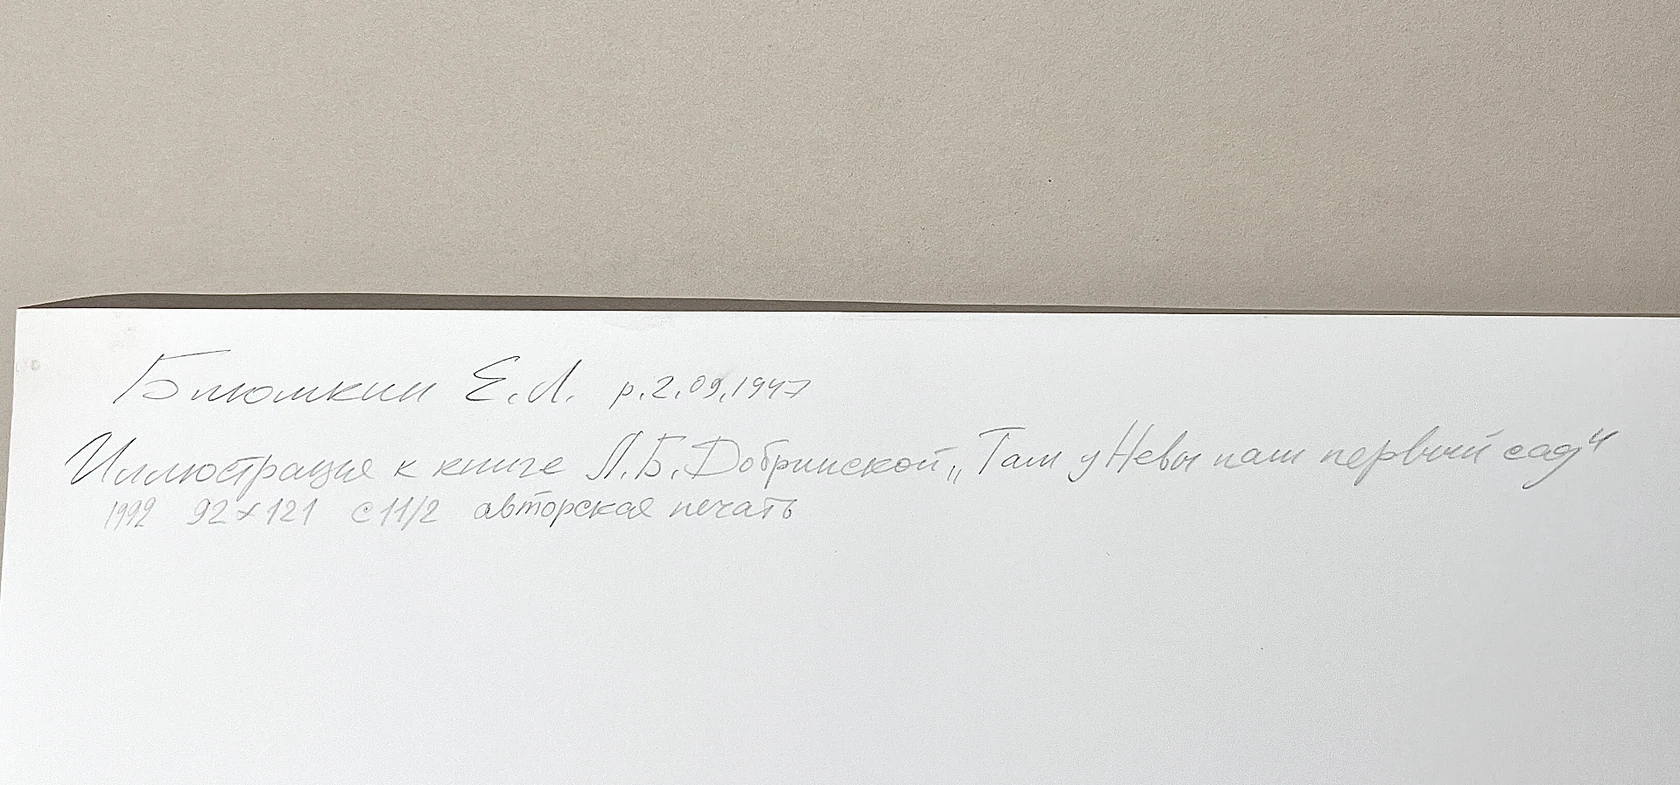 Блюмкин Е.Л. р.2.09.1947
Иллюстрация к книге Л.Б.Добринской „Там у Невы наш первый сад“
1992 92×121 С11/2 авторская печать